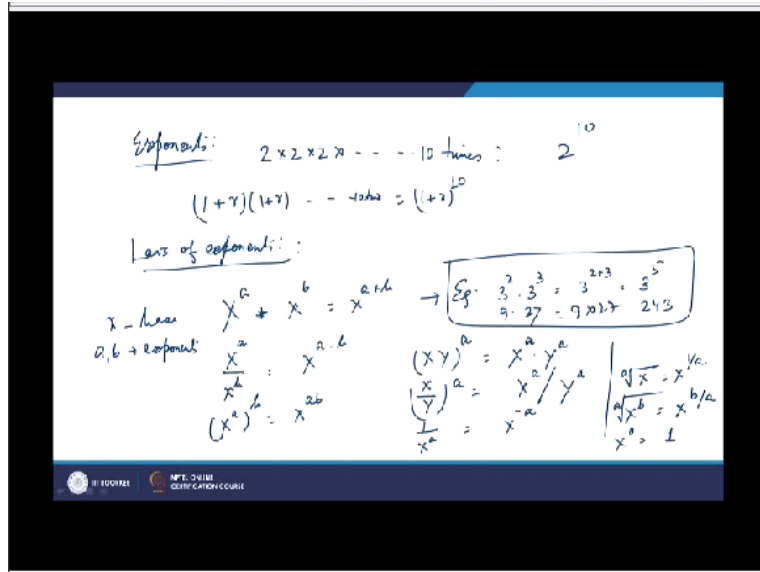 Exponents:
2 × 2 × 2 × - - - - 10 times : 2^10
(1+r)(1+r) - - 10 times = (1+r)^10
Laws of exponents :
x - base
a, b → exponent
x^a * x^b = x^(a+b)
x^a / x^b = x^(a-b)
(x^a)^b = x^ab
→ Eg. 3^2 · 3^3 = 3^(2+3) = 3^5
9 · 27 = 9×27 243
(XY)^a = X^a · Y^a
(X/Y)^a = X^a / Y^a
1/x^a = x^-a
a√x = x^1/a
a√x^b = x^b/a
x^0 = 1
IIT ROORKEE
NPTEL ONLINE
CERTIFICATION COURSE